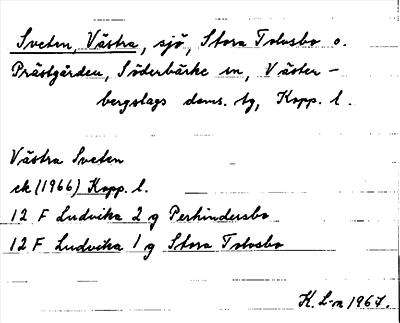 Sveten, Västra, sjö, Stora Tolvsbo o.
Prästgården, Söderbärke sn, Väster-
bergslags doms. tg, Kopp. l.
Västra Sveten
ek (1966) Kopp. l.
12 F Ludvika 2 g Perhindersbo
12 F Ludvika 1 g Stora Tolvsbo
K. L-n 1967.